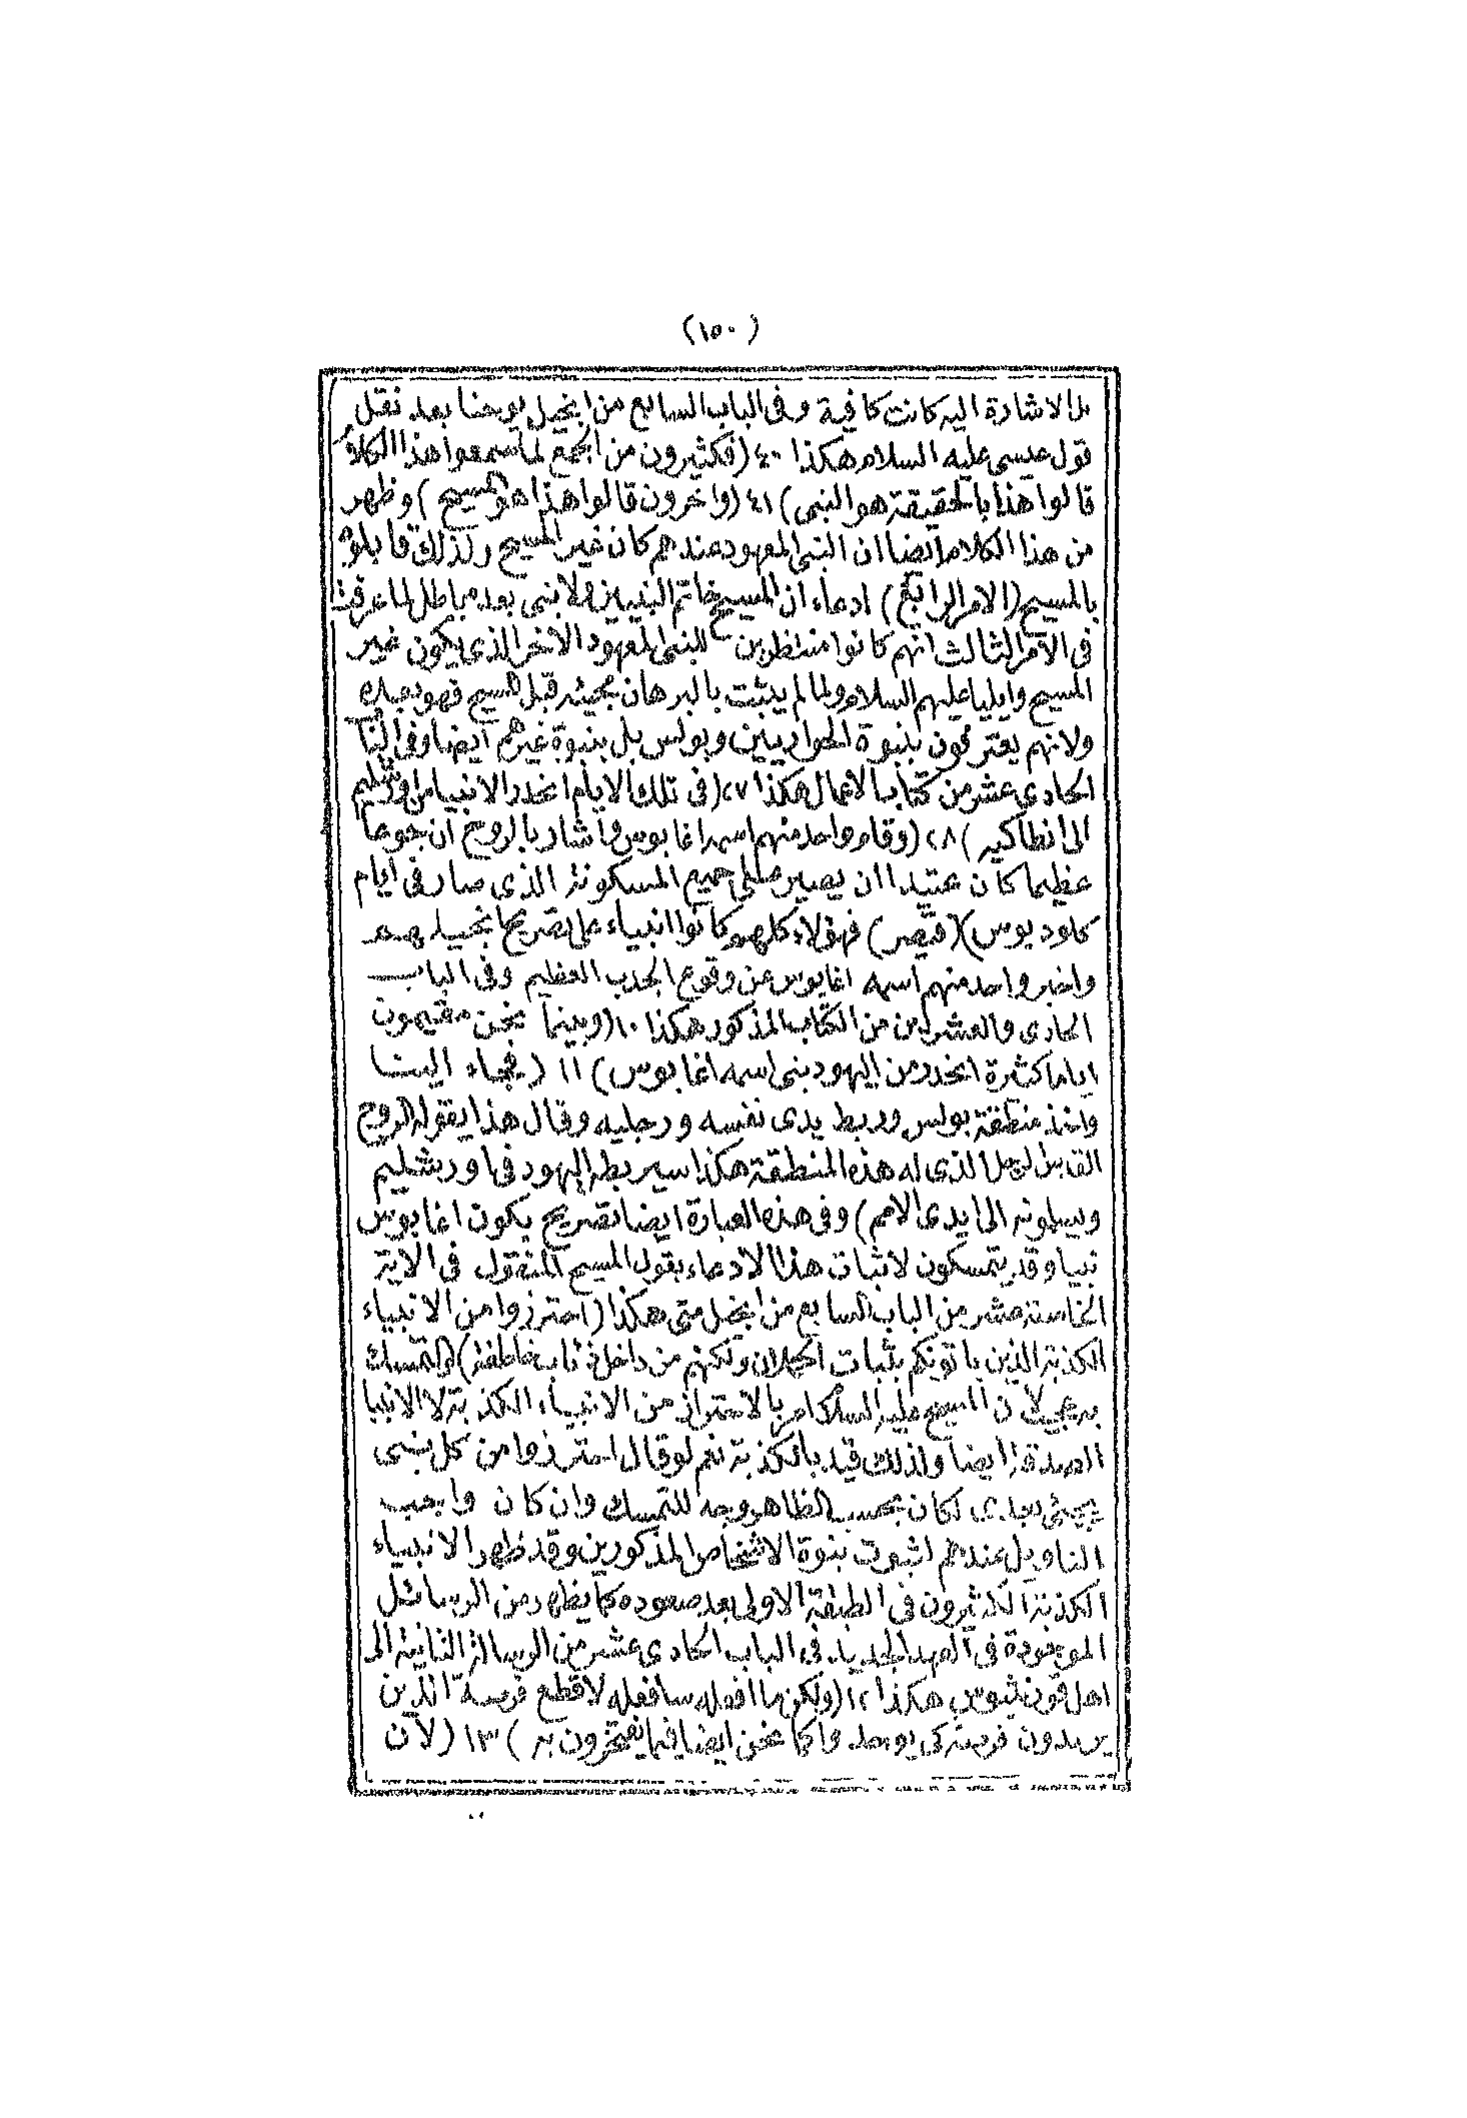 (١٥٠)
بل الاشارة اليه كانت كافية وفى الباب السابع من انجيل يوحنا بعد نقل
قول عيسى عليه السلام هكذا ٤٠ (فكثيرون من الجمع لما سمعوا هذا الكلام
قالوا هذا بالحقيقة هو النبى) ٤١ (واخرون قالوا هذا هو المسيح) وظهر
من هذا الكلام ايضا ان النبى المعهود عندهم كان غير المسيح ولذلك قابلوه
بالمسيح (الامر الرابع) ادعاء ان المسيح خاتم النبيين ولا نبى بعده باطل لما عرفت
فى الامر الثالث انهم كانوا منتظرين للنبى المعهود الاخر الذى يكون غير
المسيح وايليا عليهم السلام ولما لم يثبت بالبرهان مجيئه قبل المسيح فهو بعده
ولانهم يعترفون بنبوة الحواريين وبولس بل بنبوة غيرهم ايضا وفى الباب
الحادى عشر من كتاب الاعمال هكذا ٢٧ (فى تلك الايام انحدر الانبيا من اورشليم
الى انطاكيه) ٢٨ (وقام واحد منهم اسمه اغابوس واشار بالروح ان جوعا
عظيما كان عتيدا ان يصير على جميع المسكونة الذى صار فى ايام
كلوديوس) (قيصر) فهؤلاء كلهم كانوا انبياء على تصريح انجيلهم
واخبر واحد منهم اسمه اغابوس عن وقوع الجدب العظيم وفى الباب
الحادى والعشرين من الكتاب المذكور هكذا ١٠ (وبينما نحن مقيمون
اياما كثيرة انحدر من اليهود نبى اسمه اغابوس) ١١ (فجاء الينا
واخذ منطقة بولس وربط يدى نفسه ورجليه وقال هذا يقوله الروح
القدس الرجل الذى له هذه المنطقة هكذا سيربطه اليهود فى اورشليم
ويسلمونه الى ايدى الامم) وفى هذه العبارة ايضا تصريح بكون اغابوس
نبيا وقد يتمسكون لاثبات هذا الادعاء بقول المسيح المنقول فى الاية
الخامسة عشر من الباب السابع من انجيل متى هكذا (احترزوا من الانبياء
الكذبة الذين ياتونكم بثياب الحملان ولكنهم من داخل ذئاب خاطفة) والتمسك
به عجيب لان المسيح عليه السلام امر بالاحتراز من الانبياء الكذبة لا الانبيا
الصدقة ايضا ولذلك قيد بالكذبة نعم لو قال احترزوا من كل نبى
يجيئ بعدى لكان بحسب الظاهر وجه للتمسك وان كان واجب
التاويل عندهم لثبوت نبوة الاشخاص المذكورين وقد ظهر الانبياء
الكذبة الكثيرون فى الطبقة الاولى بعد صعوده كما يظهر من الرسائل
الموجودة فى العهد الجديد فى الباب الحادى عشر من الرسالة الثانية الى
اهل قورنثيوس هكذا ١٢ (ولكن ما افعله سافعله لاقطع فرصة الذين
يريدون فرصة كى يوجدوا كما نحن ايضا فيما يفتخرون به) ١٣ (لان